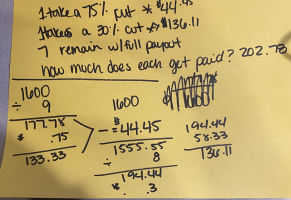 1 take a 75% cut * $44.45
1 takes a 30% cut * $136.11
7 remain w/ full payout
how much does each get paid? 202.78
1600
÷ 9
177.78
* .75
133.33
1600
- $44.45
1555.55
÷ 8
194.44
* .3
194.44
58.33
136.11